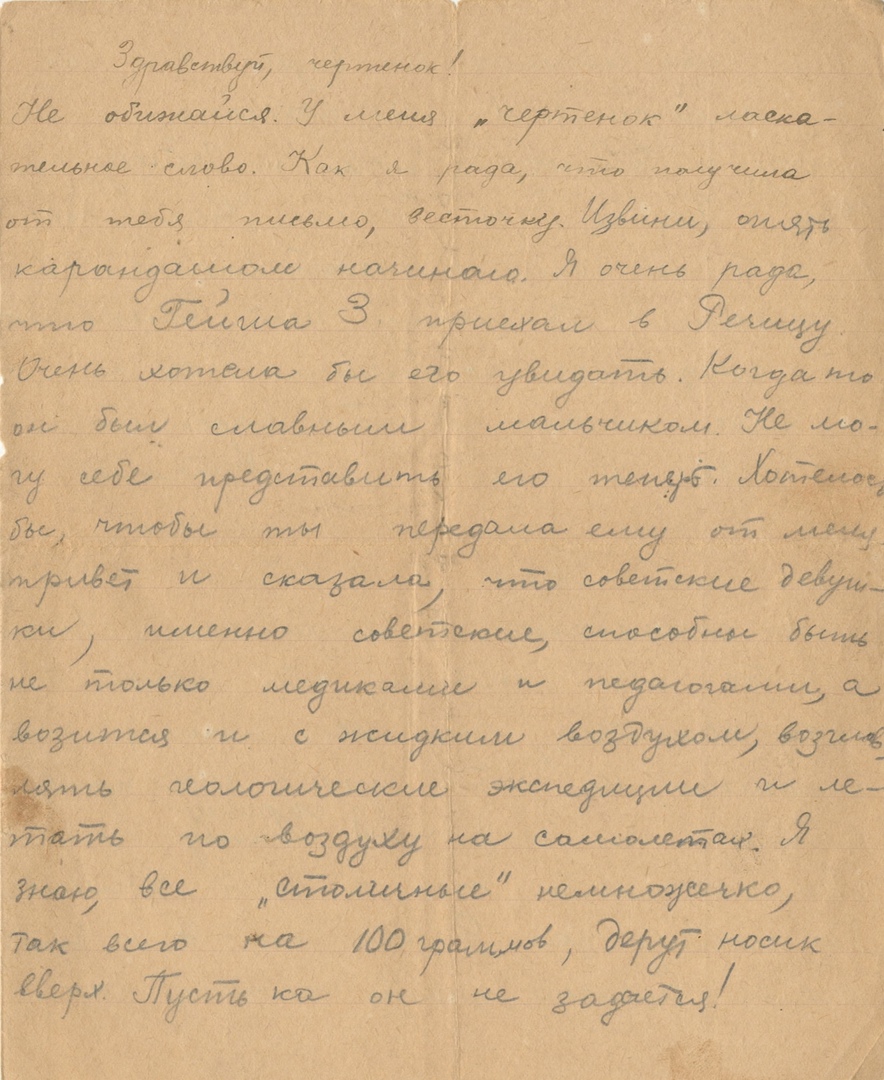 Здравствуй, чертенок!
Не обижайся. У меня „чертенок" ласка-
тельное слово. Как я рада, что получила
от тебя письмо, весточку. Извини, опять
карандашом начинаю. Я очень рада,
что Гейша З. приехал в Речицу.
Очень хотела бы его увидать. Когда то
он был славным мальчиком. Не мо-
гу себе представить его теперь. Хотелось
бы, чтобы ты передала ему от меня
привет и сказала, что советские девуш-
ки, именно советские, способны быть
не только медиками и педагогами, а
возится и с жидким воздухом, возглав-
лять геологические экспедиции и ле-
тать по воздуху на самолетах. Я
знаю, все „столичные" немножечко,
так всего на 100 граммов, дерут носик
вверх. Пусть ка он не задается!